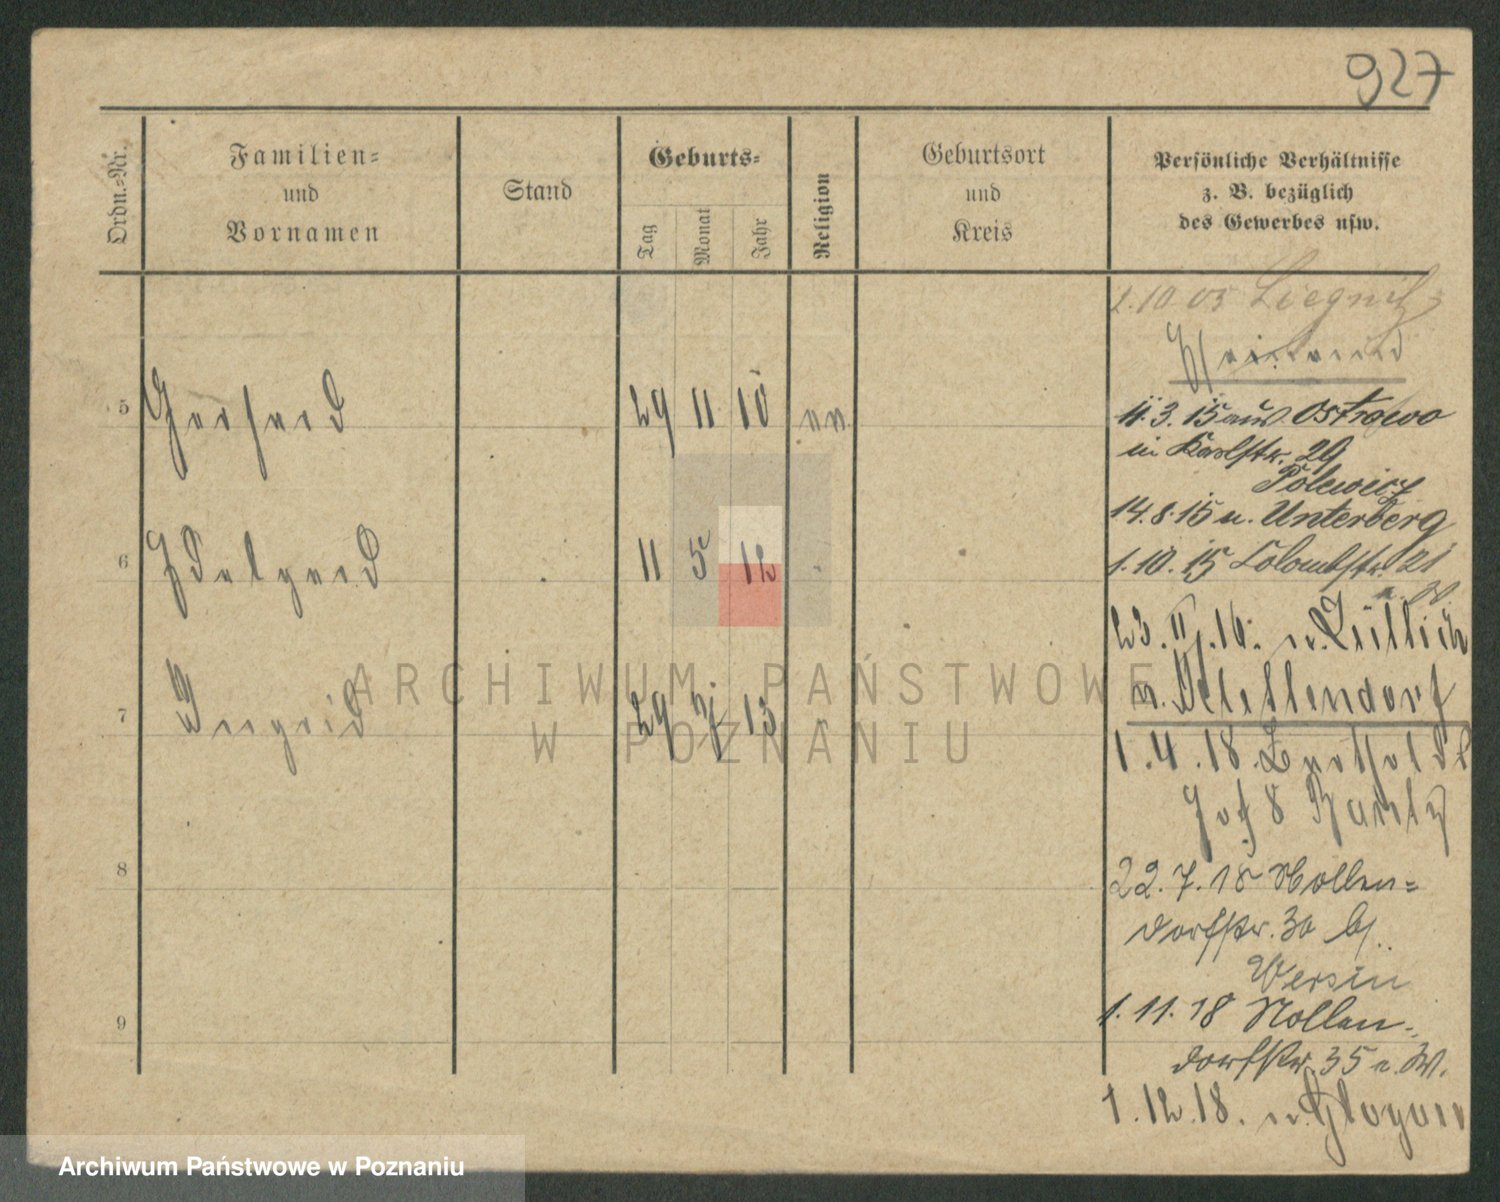 927
Ordn.=Nr.
Familien=
und
Vornamen
Stand
Geburts=
Tag
Monat
Jahr
Religion
Geburtsort
und
Kreis
Persönliche Verhältnisse
z. B. bezüglich
des Gewerbes usw.
1.10 05 Liegnitz
5 Gerhard 29 11 10 ev.
11.3.15 aus Ostrowo
in Karlstr. 29
Polewicz
14.8.15 n. Unterberg
6 Idelgard 11 5 12
1.10.15 Colombstr. 21
23. II. 16. n. Züllich
7 Ingrid 29 7 13
n. Mettendorf
1.4.18.
8
22.7.18 Nollen=
dorfstr. 30 b/.
Wersin
9
1.11.18 Nollen=
dorfstr. 35 n. W.
1.12.18. n. Glogau
ARCHIWUM PAŃSTWOWE
W POZNANIU
Archiwum Państwowe w Poznaniu